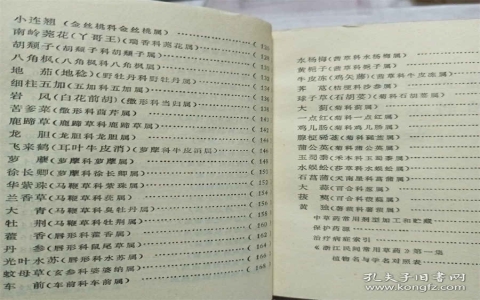 小连翘(金丝桃科金丝桃属)
南岭荛花(丫哥王)(瑞香科荛花属)
胡颓子(胡颓子科胡颓子属)
八角枫(八角枫科八角枫属)
地 茄(地稔)(野牡丹科野牡丹属)
细柱五加(五加科五加属)
岩 风(白花前胡)(伞形科当归属)
苦爹菜(伞形科茴芹属)
鹿蹄草(鹿蹄草科鹿蹄草属)
龙 胆(龙胆科龙胆属)
飞来鹤(耳叶牛皮消)(萝摩科牛皮消属)
萝 藦(萝摩科萝摩属)
徐长卿(萝摩科徐长卿属)
华紫珠(马鞭草科紫珠属)
兰香草(马鞭草科莸属)
大 青(马鞭草科臭牡丹属)
牡 荆(马鞭草科牡荆属)
藿 香(唇形科藿香属)
丹 参(唇形科鼠尾草属)
光叶水苏(唇形科水苏属)
蚊母草(玄参科婆婆纳属)
车 前(车前科车前属)
水杨梅
牛皮冻(鸡矢藤)(茜草科牛皮冻属)
球子草(石胡荽)
大 蓟(菊科蓟属)
一点红(菊科一点红属)
鸡儿肠(菊科鸡儿肠属)
蒲公英(菊科蒲公英属)
玉蜀黍(禾本科玉蜀黍属)
水蜈蚣(莎草科水蜈蚣属)
石菖蒲(天南星科菖蒲属)
大 蒜(百合科葱属)
黄 独(薯蓣科薯蓣属)
中草药常用剂型加工和贮藏
保护药源
治疗病症索引
《浙江民间常用草药》第一集
植物名与学名对照表
孔夫子旧书网
www.kongfz.com